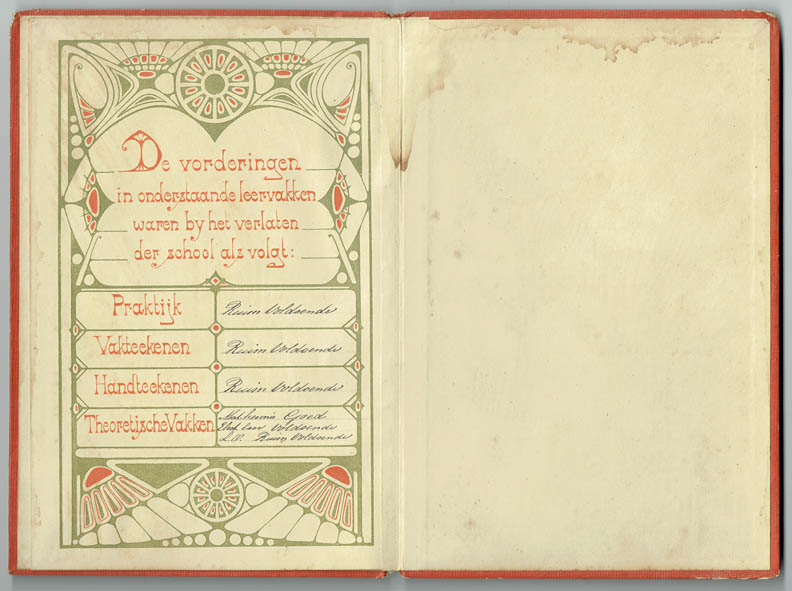 De vorderingen
in onderstaande leervakken
waren by het verlaten
der school als volgt:
Praktijk Ruim Voldoende
Vakteekenen Ruim Voldoende
Handteekenen Ruim Voldoende
Theoretische Vakken Goed
Voldoende
Ruim Voldoende